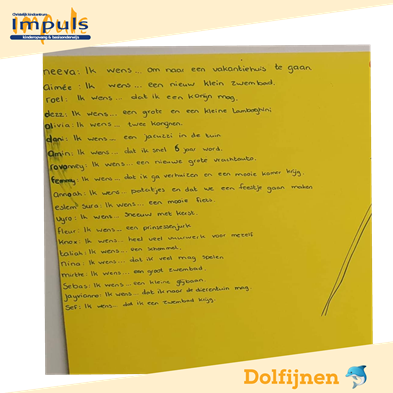 Christelijk Kindcentrum
Impuls
kinderopvang & basisonderwijs
neeva: Ik wens... om naar een vakantiehuis te gaan
aimée: Ik wens... een nieuw klein zwembad.
roel: Ik wens... dat ik een konijn mag.
dezz: Ik wens... een grote en een kleine Lamborghini
olivia: Ik wens... twee konijnen.
dani: Ik wens... een jacuzzi in de tuin
amin: Ik wens... dat ik snel 6 jaar word.
Ik wens... een nieuwe grote vrachtauto.
Ik wens... dat ik ga verhuizen en een mooie kamer krijg.
Ik wens... patatjes en dat we een feestje gaan maken
Ik wens... een mooie fiets.
Ik wens... sneeuw met kerst.
fleur: Ik wens... een prinsessenjurk
Knox: Ik wens... heel veel vuurwerk voor mezelf
Ik wens... een schommel
nina: Ik wens... dat ik veel mag spelen
mirthe: Ik wens... een groot zwembad.
Sebas: Ik wens... een kleine glijbaan
Ik wens... dat ik naar de dierentuin mag.
Sef: Ik wens... dat ik een zwembad krijg.
Dolfijnen